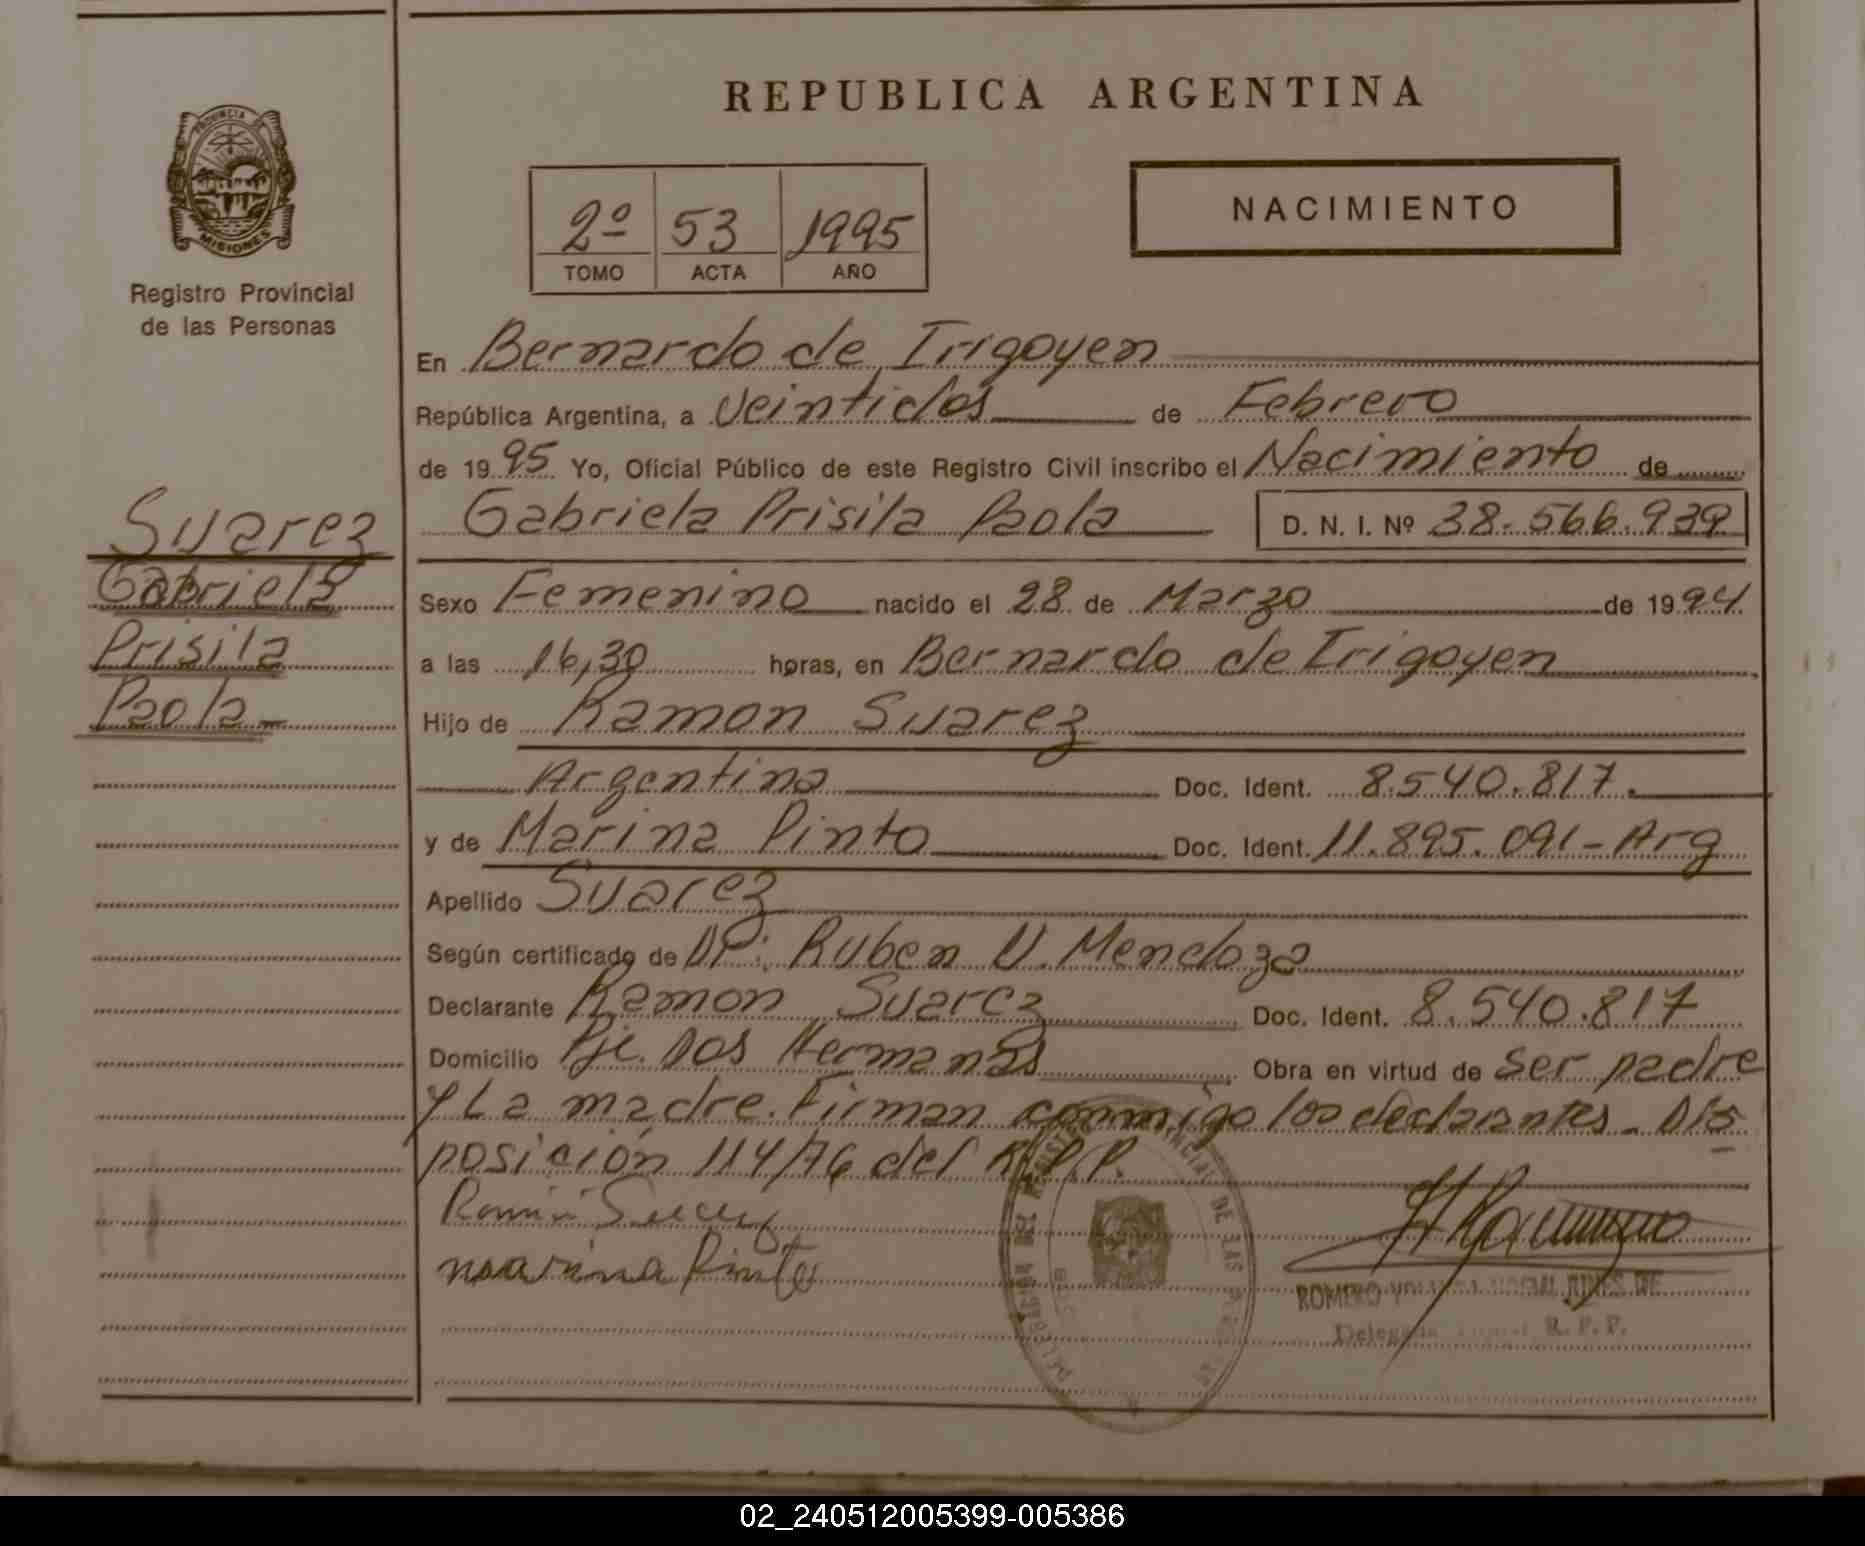 REPUBLICA ARGENTINA
PROVINCIA DE
MISIONES
Registro Provincial
de las Personas
2º 53 1995
TOMO ACTA AÑO
NACIMIENTO
En Bernardo de Irigoyen
República Argentina, a Veintidos de Febrero
de 1995 Yo, Oficial Público de este Registro Civil inscribo el Nacimiento de
Gabriela Prisila Paola D. N. I. Nº 38.566.939
Suarez
Gabriela
Prisila
Paola
Sexo Femenino nacido el 28 de Marzo de 1994
a las 16,30 horas, en Bernardo de Irigoyen
Hijo de Ramon Suarez
Argentina Doc. Ident. 8.540.817.
y de Marina Pinto Doc. Ident. 11.895.091-Arg
Apellido Suarez
Según certificado de Dr: Ruben V. Mendoza
Declarante Ramon Suarez Doc. Ident. 8.540.817
Domicilio Pje. Dos Hermanas Obra en virtud de ser padre
y La madre. Firman conmigo los declarantes - Dis
posición 114/76 del R.P.P.
Ramon Suarez
marina Pinto
ROMERO
R. P. P.
02_240512005399-005386